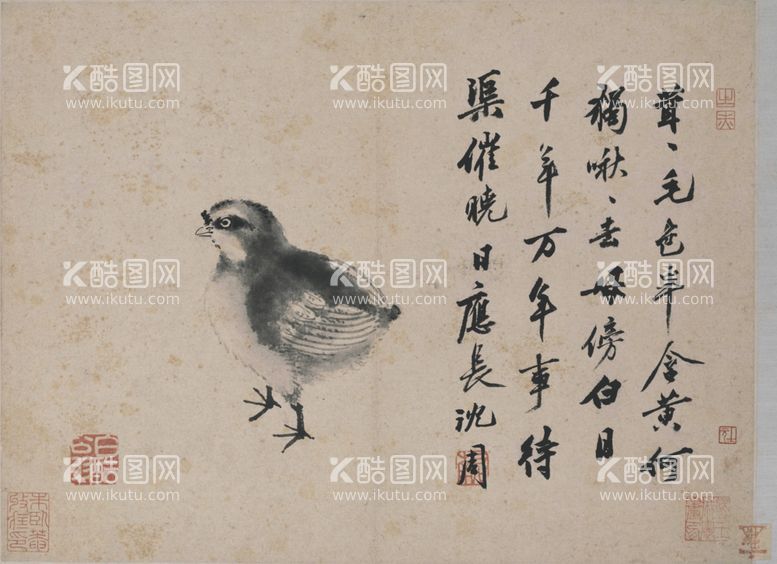 茸〻毛色半含黄何
獨啾〻去母傍白日
千年万年事待
渠催曉日應長沈周
酷图网
www.ikutu.com
酷图网
www.ikutu.com
酷图网
www.ikutu.com
酷图网
www.ikutu.com
酷图网
www.ikutu.com
酷图网
www.ikutu.com
酷图网
www.ikutu.com
酷图网
www.ikutu.com
酷图网
www.ikutu.com